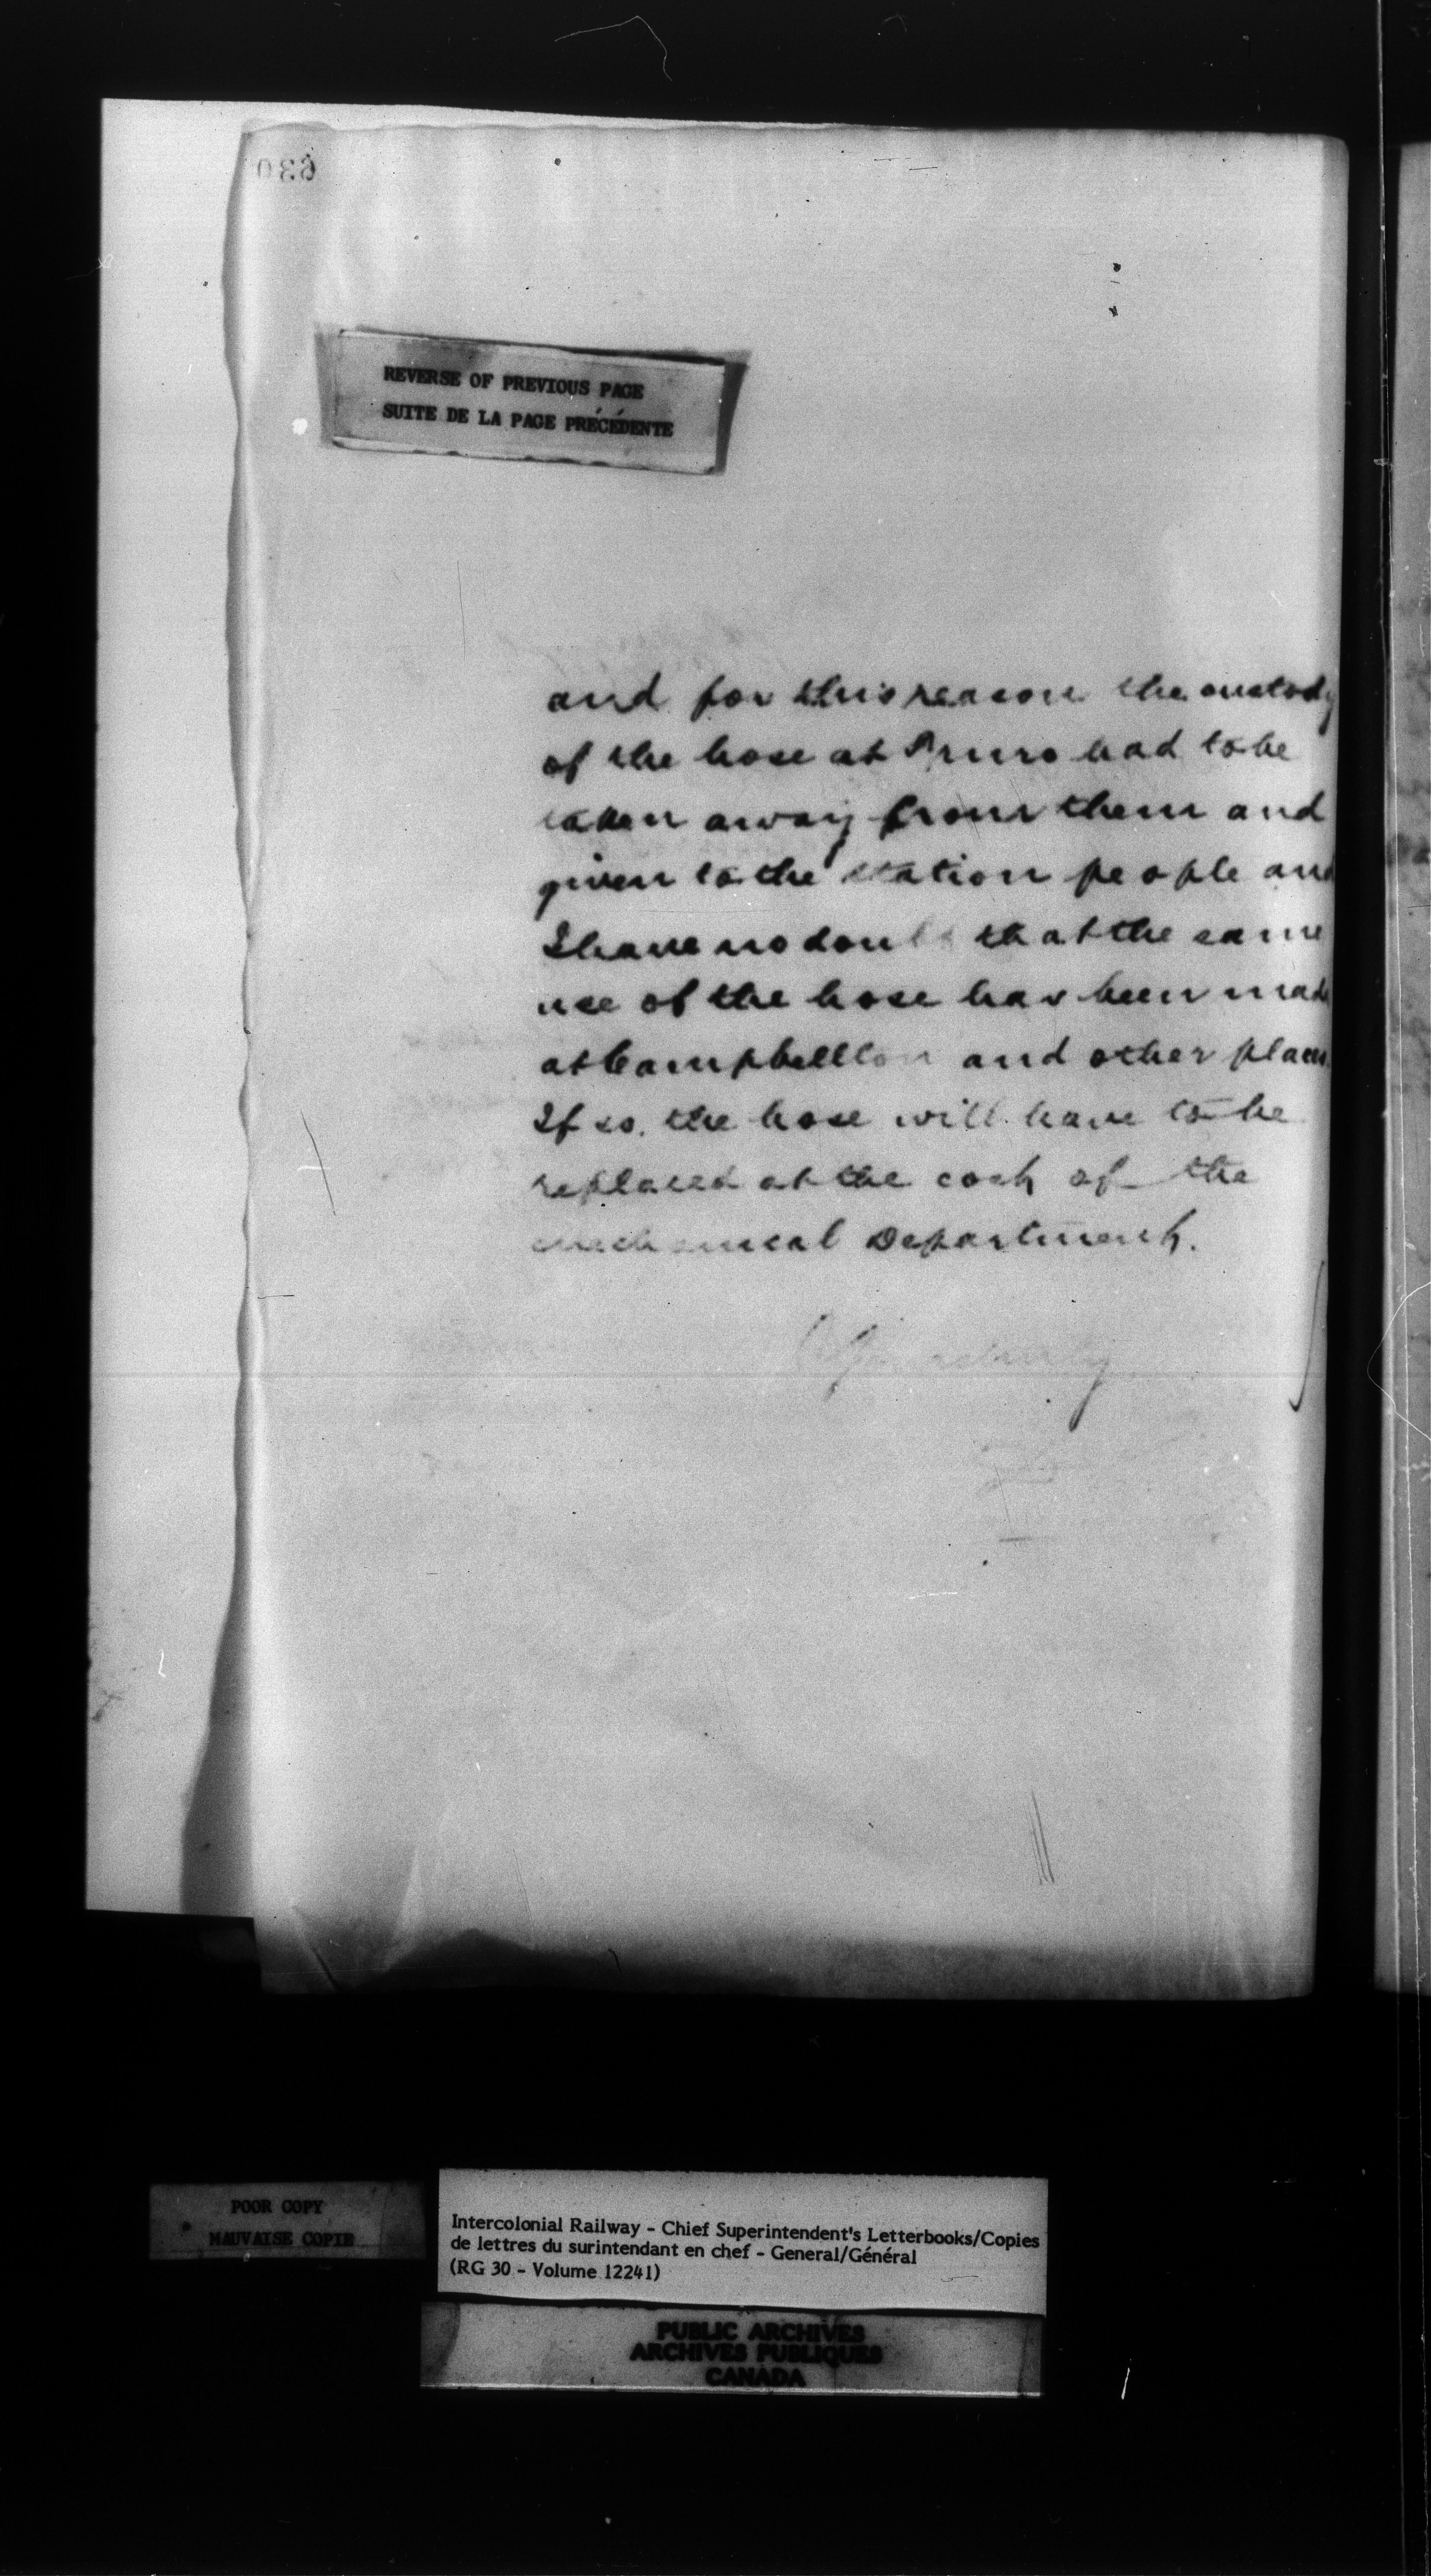 630
REVERSE OF PREVIOUS PAGE
SUITE DE LA PAGE PRÉCÉDENTE
and for this reason the custody
of the hose at Truro had to be
taken away from them and
given to the station people and
I have no doubt that the same
use of the hose has been made
at Campbellton and other places.
If so, the hose will have to be
replaced at the cost of the
mechanical Department.
POOR COPY
MAUVAISE COPIE
Intercolonial Railway - Chief Superintendent's Letterbooks/Copies
de lettres du surintendant en chef - General/Général
(RG 30 - Volume 12241)
PUBLIC ARCHIVES
ARCHIVES PUBLIQUES
CANADA